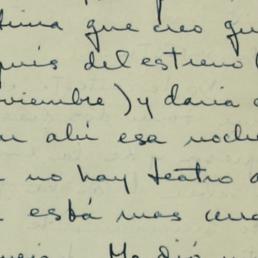 tima que creo qu
pués del estreno (
oviembre) y daria
ahi esa noche
no hay teatro a
está mas cerca
Me dió